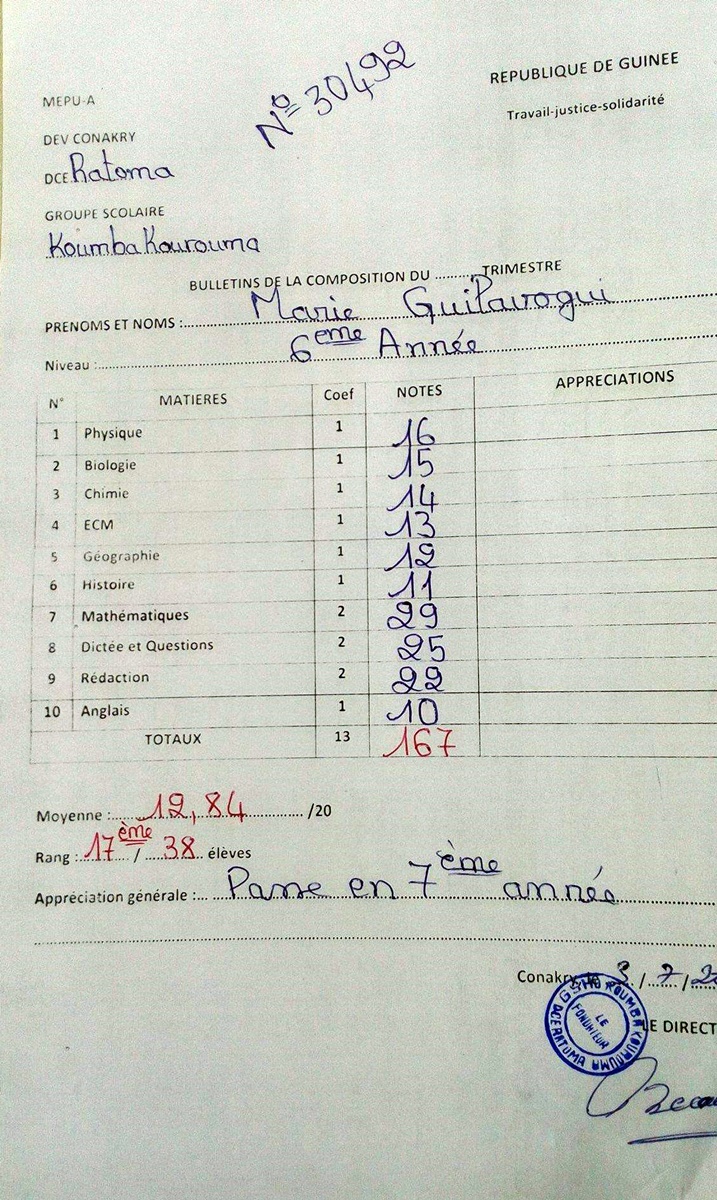 N° 30492
REPUBLIQUE DE GUINEE
Travail-justice-solidarité
MEPU-A
DEV CONAKRY
DCE Ratoma
GROUPE SCOLAIRE
Koumba Kourouma
BULLETINS DE LA COMPOSITION DU .......... TRIMESTRE
PRENOMS ET NOMS : Marie Guilavogui
Niveau : 6eme Année
N° MATIERES Coef NOTES APPRECIATIONS
1 Physique 1 16
2 Biologie 1 15
3 Chimie 1 14
4 ECM 1 13
5 Géographie 1 12
6 Histoire 1 11
7 Mathématiques 2 29
8 Dictée et Questions 2 25
9 Rédaction 2 22
10 Anglais 1 10
TOTAUX 13 167
Moyenne : 12,84 /20
Rang : 17ème / 38 élèves
Appréciation générale : Passe en 7ème année
Conakry, le 3 / 7 / 2
LE DIRECT
GSHD KOUMBA KOUROUMA
DCE RATOMA
LE FONDATEUR